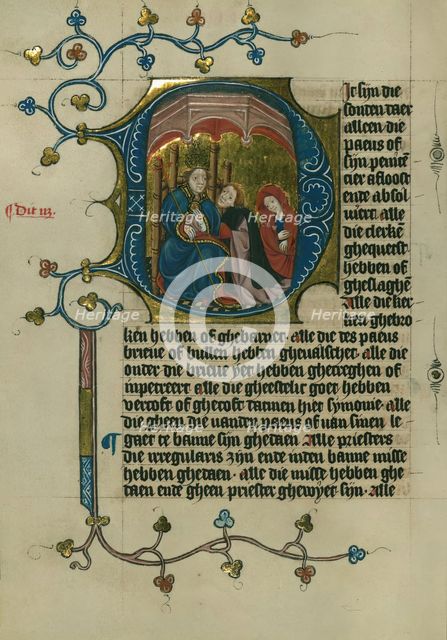 It sijn die
sonden daer
alleen die
paeus of
syn penite
cier af loost
ende absol
wert. alle
die clerke
ghequetst
hebben of
gheslaghe
Alle die ker
ken ghebro
¶ Dit iij.
ken hebben of ghebarnet. alle die des paeus
brieue of bullen hebben gheualschet. alle die
onder die brieue yet hebben ghecreghen of
inpetreert alle die gheestelic goet hebben
vercoft of ghecoft dat men hiet symonie. alle
die gheen die vanden paeus of van sinen le
gaet te banne sijn ghedaen. Alle priesters
die irregularis zijn ende inden banne misse
hebben ghedaen. alle die misse hebben ghe
daen ende gheen priester ghewyet sijn. alle
Heritage
Heritage
Heritage
Heritage
Heritage
Heritage
Heritage
Heritage